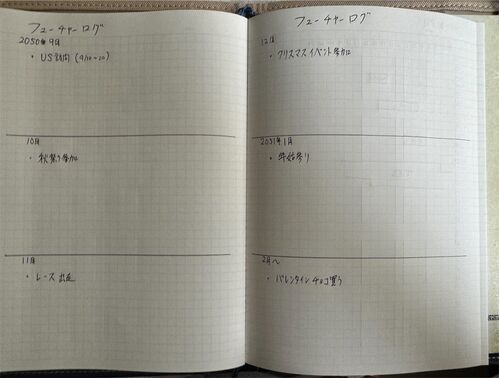 フューチャーログ
2050年9月
・US訪問 (9/10~20)
10月
・秋祭り参加
11月
・レース出走
フューチャーログ
12月
・クリスマスイベント参加
2051年1月
・年始参り
2月~
・バレンタインチョコ買う